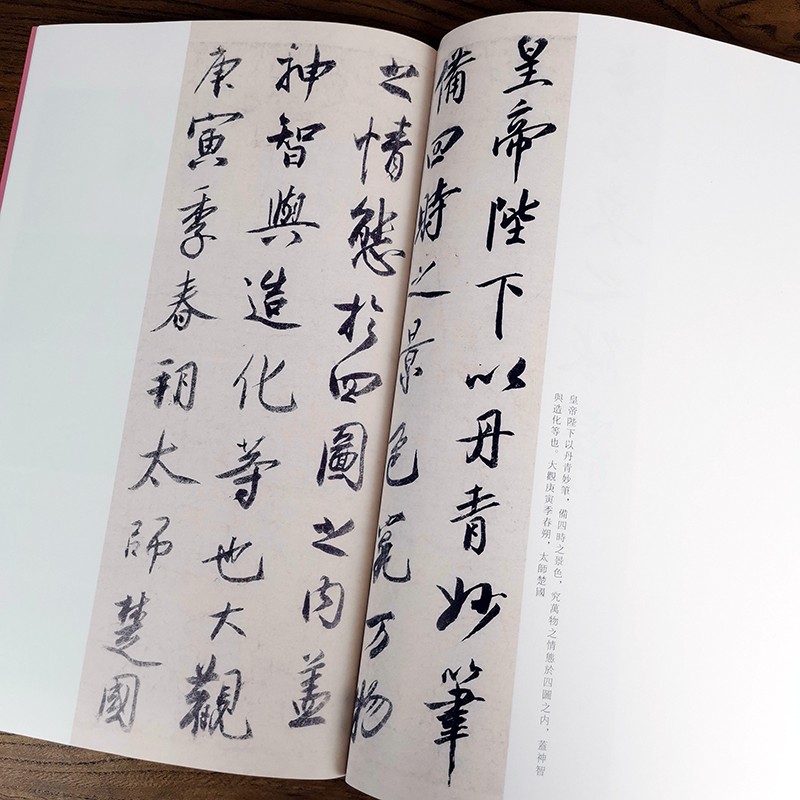 皇帝陛下以丹青妙筆
備四時之景色究万物
之情態於四圖之内蓋
神智與造化等也大觀
庚寅季春朔太師楚國
皇帝陛下以丹青妙筆，備四時之景色，究萬物之情態於四圖之内，蓋神智
與造化等也。大觀庚寅季春朔，太師楚國